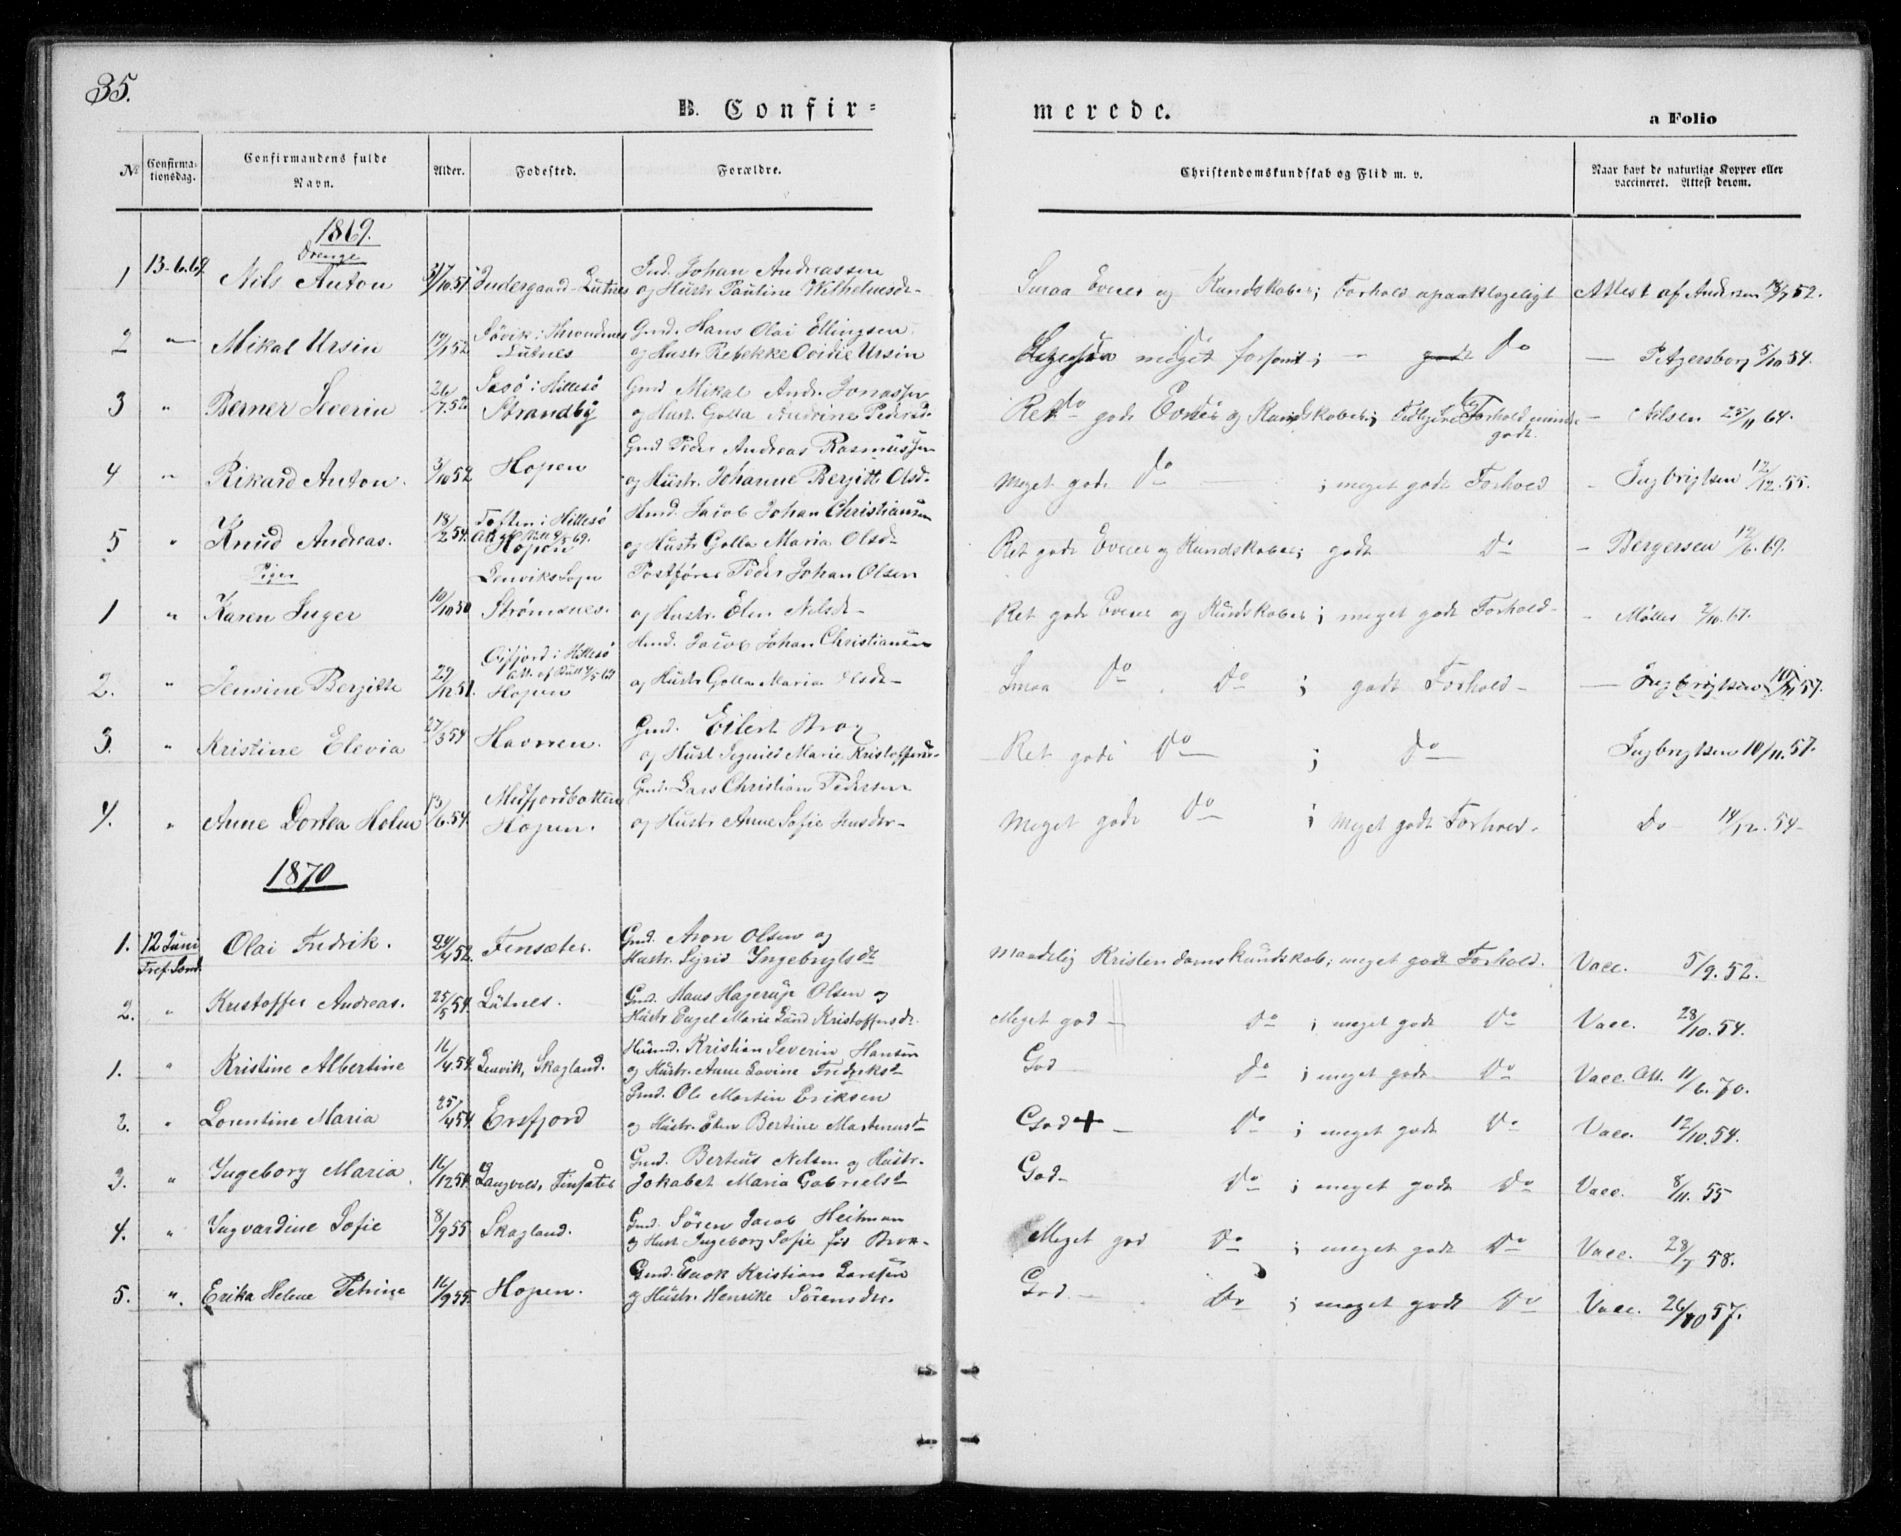 35.
B. Confir=
merede.
a Folio
No
Confirma-
tionsdag.
Confirmandens fulde
Navn.
Alder.
Fødested.
Forældre.
Christendomskundskab og Flid m. v.
Naar havt de naturlige Kopper eller
vaccineret. Attest derom.
1869.
Drenge
1 13-6.69. Nils Anton 31/10.51 Indergaard-Lutnes
Ind. Johan Andreassen
og Hustr Pauline Wilhelmsdr-
Smaa Evner og Kundskaber; Forhold upaaklageligt Attest af Andersen 52.
2 — Mikal Ursin 52
Lutnes
Gmd. Hans Olai Ellingsen
og Hustr Rebekke Ovidie Ursin
meget forsømt; - Do — 5/10 54.
3 " Berner Severin 26/7.52
i Hillesø
Strandby
Gmd Mikal Andr. Jonassen
og Hust. Golla Andrine Pedersd-
Ret gode Evner og Kundskaber; Forhold mindre
godt.
- Nilsen 25/11 64.
4 " Rikard Anton. 3/10 52 Hopen
Gmd Peder Andreas Rasmussen
og Hustr. Johanne Berjitte Olsd-
Meget gode Do — ; meget godt Forhold - Ingbrigtsen 12/12.55.
5 " Knud Andreas. 18/2 54.
Toften i Hillesø
Hopen
Hmd. Jacob Johan Christiansen
og Hustr Golla Maria Olsd-
Ret gode Evner og Kundskaber; godt Do - Bergersen 12/6.69.
Piger
1 " Karen Inger 10/10 50
Lenviks Sogn
Strømsnes.
Postfører Peder Johan Olsen
og Hustr. Elen Nilsd-
Ret gode Evner og Kundskaber; meget godt Forhold- - Møller 7/10.67.
2. " Jensine Berjitte 29/12 51.
Øifjord i Hillesø
Hopen
Hmd. Jacob Johan Christiansen
og Hustr Golla Maria Olsdr-
Smaa Do Do ; godt Forhold- — Ingbrigtsen 10/11 57.
3. " Kristine Elevia 27/3 54 Havnen.
Gmd. Eilert Brox
og Hust Signild Marie Kristoffersdr-
Ret gode Do ; Do — Ingbrigtsen 10/11.57.
4. " Anne Dortea Holm 13/6.54.
Medfjordbotten
Hopen.
Gmd. Lars Christian Pedersen
og Hustr Anne Sofie Jensdr-
Meget gode Do ; meget godt Forhold- Do- 14/12.54-
1870
1. 12 Juni
Tref. Sønd.
Olai Fredrik. 24/4 52. Finsæter.
Gmd. Aron Olsen og
Hustr. Sigrid Ingebrigtsdt
Maadelig Kristendomskundskab; meget godt Forhold. Vacc. 5/9.52.
2. " Kristoffer Andreas. 25/5 54. Lutnes.
Gmd. Hans Hagerup Olsen og
Hustr Engel Marie Lund Kristoffersdr.
Meget god — Do ; meget godt Do Vacc. 28/10.54.
1. " Kristine Albertine 16/4.54. Lenvik, Skagland.
Husmd. Kristian Severin Hansen
og Hustr. Anne Lovine Fredriksdt
God Do ; meget godt Do Vacc. Att. 11/6.70.
2. " Lorentine Maria 25/4 54. Ersfjord
Gmd. Ole Martin Eriksen
og Hustr. Elen Bertine Martinusdt
God + — Do ; meget godt Do Vacc. 12/10.54.
3. " Ingeborg Maria. 16/12 54. Finsæter
Gmd. Berteus Nilsen og Hustr.
Jokabet Maria Gabrielsdt
God- Do ; meget godt Do Vacc. 8/11. 55
4. " Ingvardine Sofie 8/9 55 Skagland.
Gmd. Sören Jacob Heitman
og Hust Ingeborg Sofie fød Brox-
Meget god Do ; meget godt Do Vacc. 28/7 58.
5. " Erika Helene Petrine 16/9 55. Hopen.
Gmd. Enok Kristian Larssen
og Hustr. Henrike Sörensdr.
God.- Do ; meget godt Do Vacc. 26/10 57.